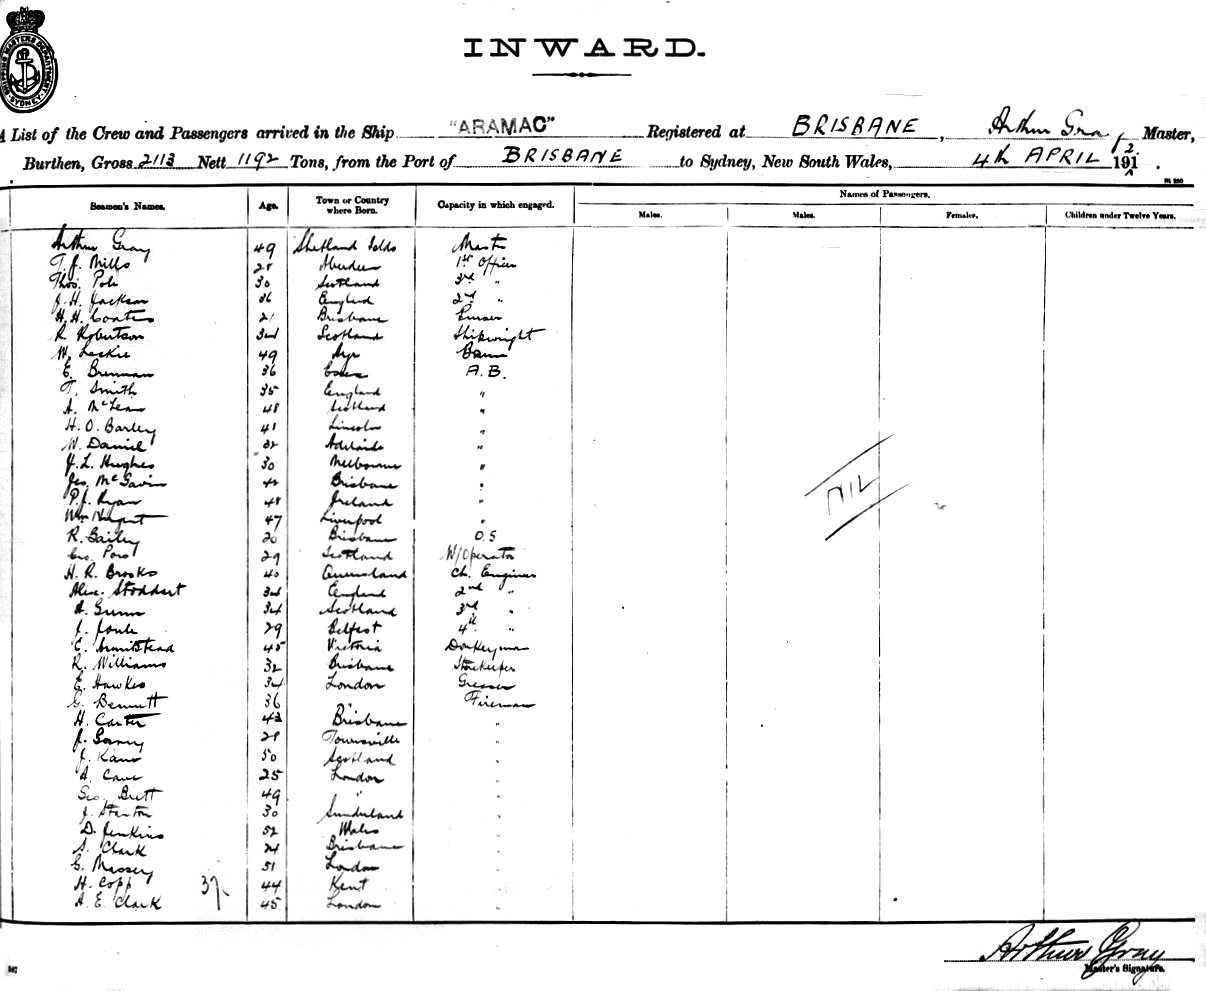 SHIPPING MASTERS DEPARTMENT SYDNEY
INWARD.
A List of the Crew and Passengers arrived in the Ship "ARAMAC" Registered at BRISBANE, Arthur Gray Master,
Burthen, Gross 2113 Nett 1192 Tons, from the Port of BRISBANE to Sydney, New South Wales, 4th APRIL 1912.
Seamen's Names. Age. Town or Country where Born. Capacity in which engaged. Names of Passengers.
Males. Males. Females. Children under Twelve Years.
Arthur Gray 49 Shetland Islds Master
T. J. Mills 28 Aberdeen 1st Officer
Thos. Pole 30 Scotland 3rd "
J. H. Jackson 36 England 2nd "
H. H. Coates 21 Brisbane Purser
R. Robertson 34 Scotland Shipwright
W. Leckie 49 Ayr
E. Brennan 36 A.B.
T. Smith 35 England "
A. McLean 48 Scotland "
H. O. Barley 41 Lincoln "
W. Daniel 32 Adelaide "
J. L. Hughes 30 Melbourne "
Jas. McGavin 42 Brisbane "
P. J. Ryan 48 Ireland "
Wm Nugent 47 Liverpool "
R. Bailey 20 Brisbane O.S
Geo. 29 Scotland W/Operator
H. R. Brooks 40 Queensland Ch. Engineer
Alex. Stoddart 34 England 2nd "
A. Gunn 34 Scotland 3rd "
J. Joule 29 Belfast 4th "
C. Armitstead 45 Victoria Donkeyman
R. Williams 32 Brisbane Storekeeper
E. Hawkes 34 London Greaser
G. Bennett 36 " Fireman
H. Carter 43 Brisbane "
J. 28 Townsville "
J. Kane 50 Scotland "
A. Cane 25 London "
Geo. Brett 49 " "
J. Stanton 30 Sunderland "
D. Jenkins 52 Wales "
S. Clark 24 Brisbane "
G. Massey 51 London "
H. Copp 44 Kent "
A. E. Clark 45 London "
37
NIL
Arthur Gray
Master's Signature.